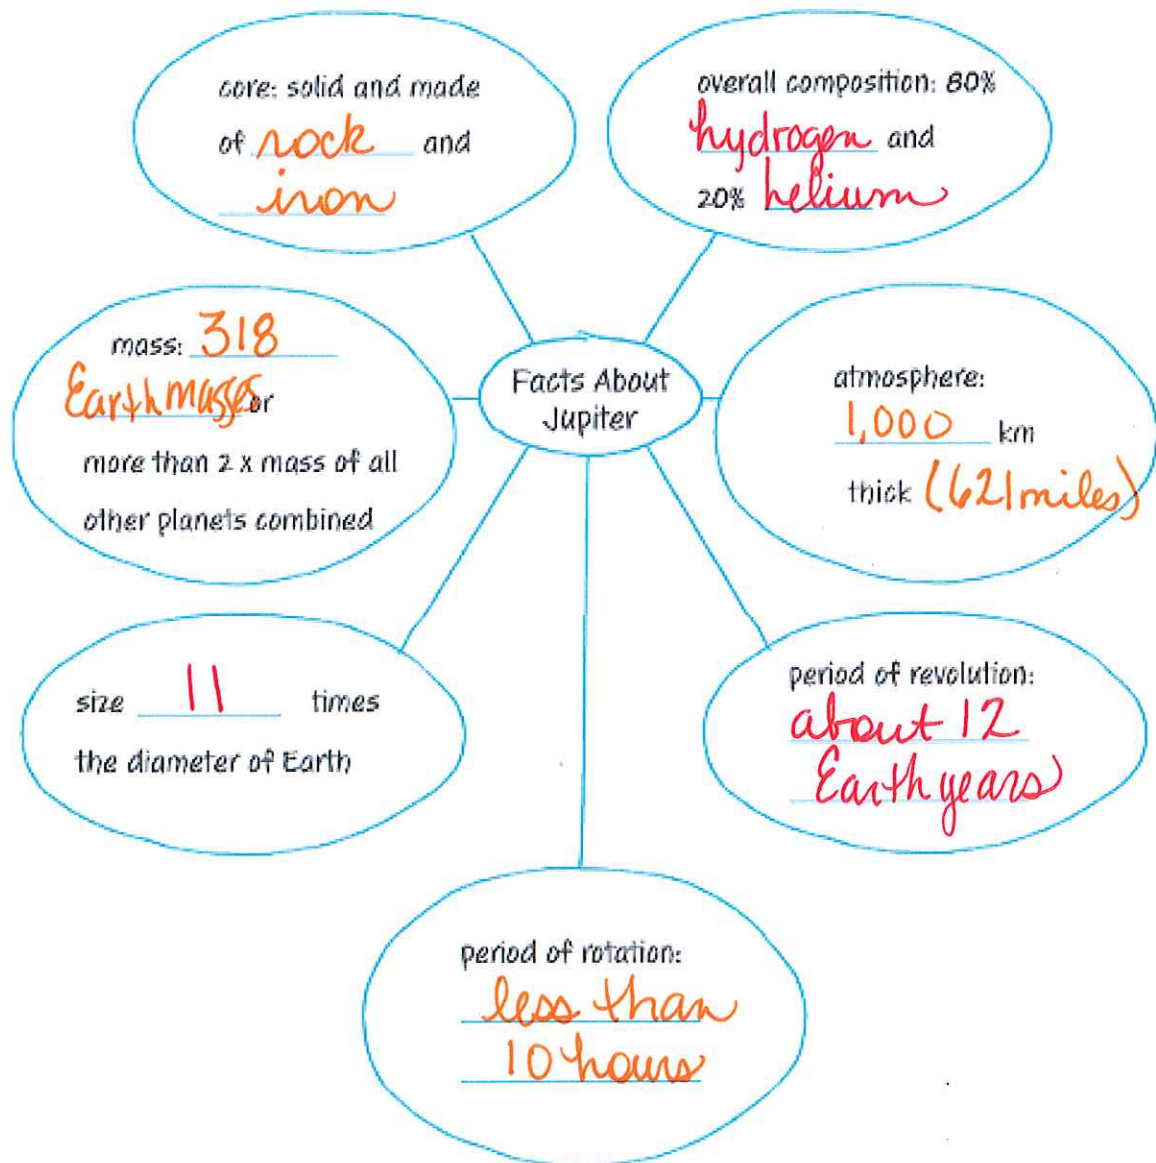 core: solid and made
of rock and
iron
overall composition: 80%
hydrogen and
20% helium
mass: 318
Earth masses or
more than 2 x mass of all
other planets combined
Facts About
Jupiter
atmosphere:
1,000 km
thick (621 miles)
size 11 times
the diameter of Earth
period of revolution:
about 12
Earth years
period of rotation:
less than
10 hours